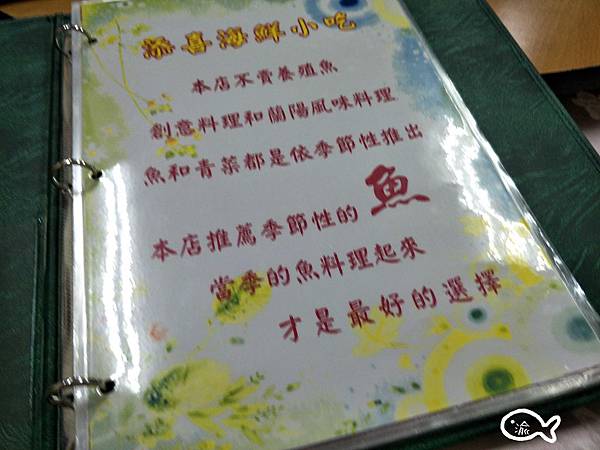 恭喜海鮮小吃
本店不賣養殖魚
創意料理和蘭陽風味料理
魚和青菜都是依季節性推出
本店推薦季節性的魚
當季的魚料理起來
才是最好的選擇